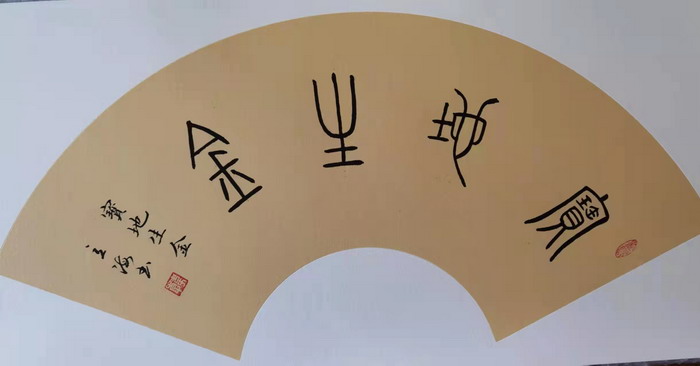 寶地生金
寶地生金
海书